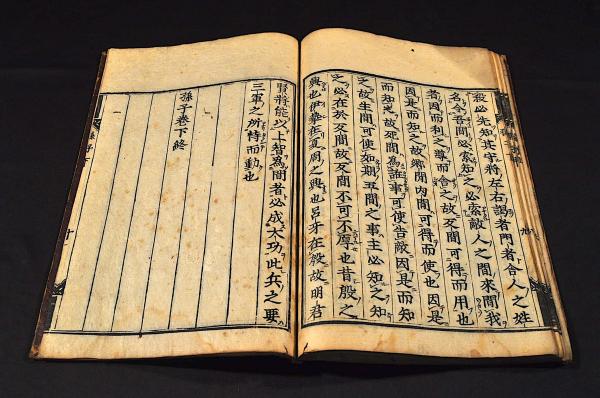 殺必先知其守將左右謁者門者舍人之姓
名令吾間必索知之必索敵人之間來間我
者因而利之導而舍之故反間可得而用也
因是而知之故鄉間内間可得而使也因是
而知之故死間為誑事可使告敵因是而知
之故生間可使如期五間之事主必知之知
之必在於反間故反間不可不厚也昔殷之
興也伊摯在夏周之興也呂牙在殷故明君
賢將能以上智為間者必成大功此兵之要
三軍之所恃而動也
孫子卷下終